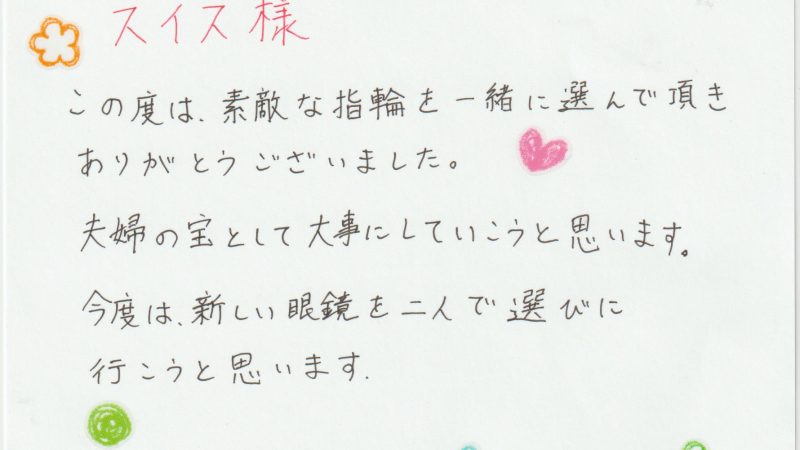 スイス様
この度は、素敵な指輪を一緒に選んで頂き
ありがとうございました。
夫婦の宝として大事にしていこうと思います。
今度は、新しい眼鏡を二人で選びに
行こうと思います.